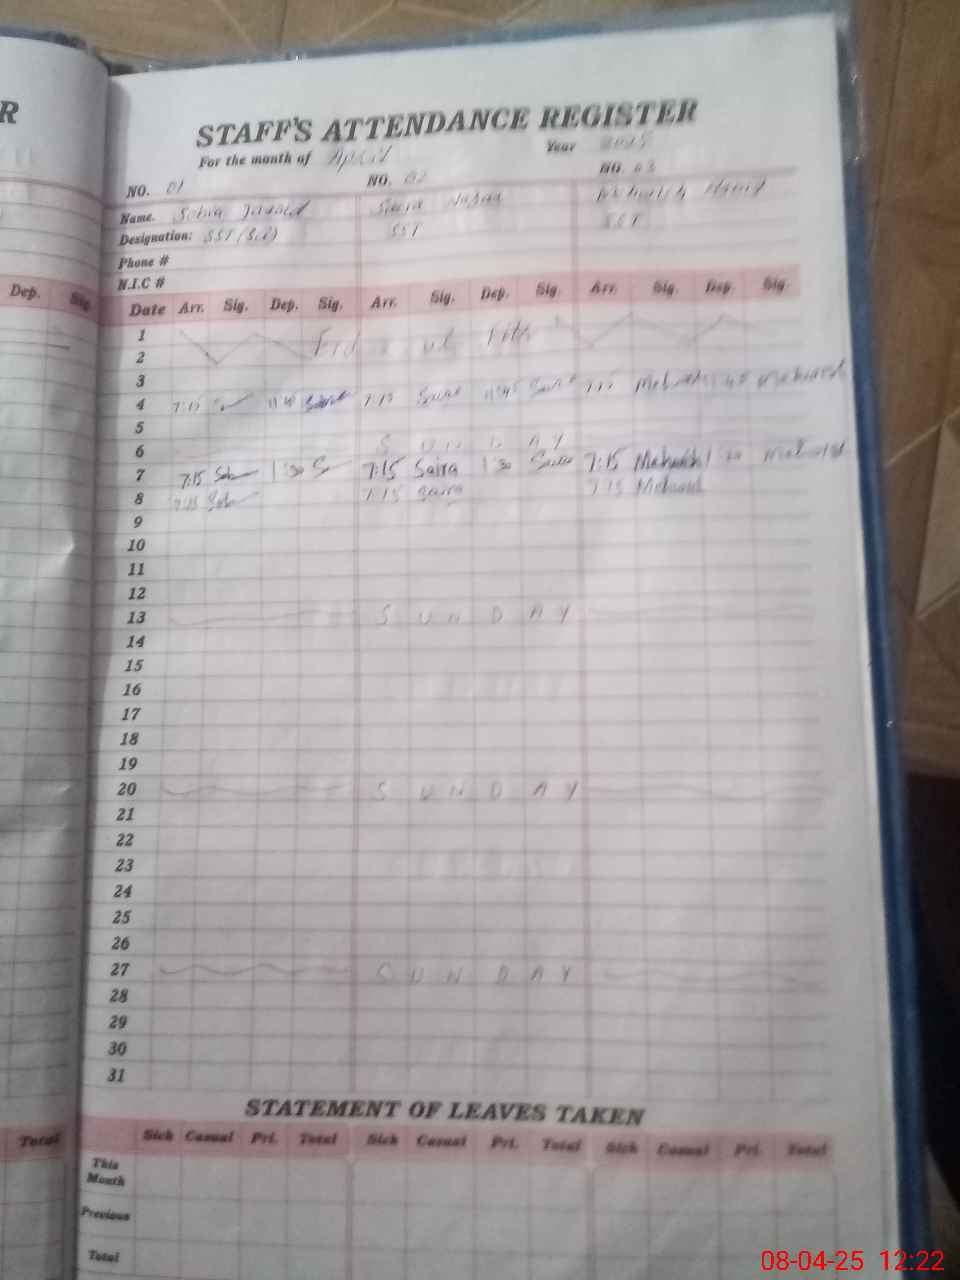 R
STAFF'S ATTENDANCE REGISTER
For the month of April Year 2025
NO. 01 NO. 02 NO. 03
Name. Sobia Javaid Saira
Designation: SST (Sci) SST SST
Phone #
N.I.C #
Dep. Sig.
Date Arr. Sig. Dep. Sig. Arr. Sig. Dep. Sig. Arr. Sig. Dep. Sig.
1
2 Eid ul Fitr
3
4 7:15 11:45 7:15 Saira 11:45 Saira 7:15
5
6 SUNDAY
7 7:15 Sob 1:30 S 7:15 Saira 1:30 Saira 7:15 Mehwish
8 7:15 Sob 7:15 Saira 7:15
9
10
11
12
13 SUNDAY
14
15
16
17
18
19
20 SUNDAY
21
22
23
24
25
26
27 SUNDAY
28
29
30
31
STATEMENT OF LEAVES TAKEN
Total
Sick Casual Pri. Total Sick Casual Pri. Total Sick Casual Pri. Total
This Month
Previous
Total
08-04-25 12:22